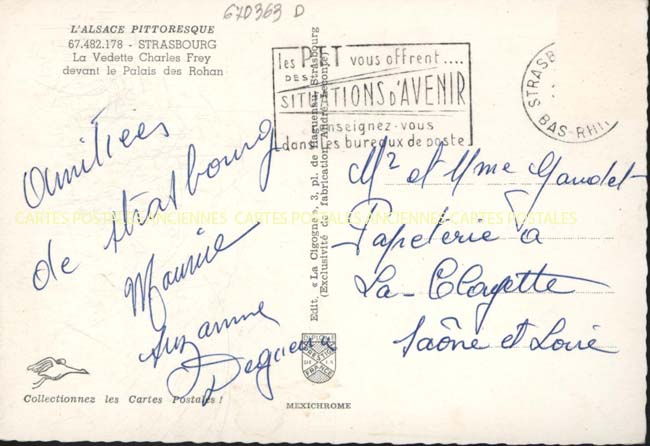 670363 D
L'ALSACE PITTORESQUE
67.482.178 - STRASBOURG
La Vedette Charles Frey
devant le Palais des Rohan
les PTT vous offrent....
DES
SITUATIONS D'AVENIR
enseignez-vous
dans les bureaux de poste
STRASB
BAS-RHIN
Amitiées
de Strasbourg
Maurice
Suzanne
Mr et Mme Gaudet
Papeterie à
La-Clayette
Saône et Loire
Edit. « La Cigogne », 3, pl. de Haguenau, Strasbourg
(Exclusivité de fabrication André Leconte)
CARTES POSTALES ANCIENNES CARTES POSTALES ANCIENNES CARTES POSTALES
PRESTIGE
FRANCE
Collectionnez les Cartes Postales !
MEXICHROME